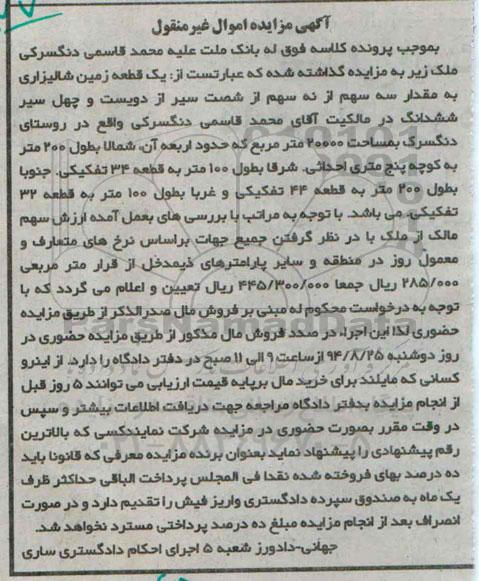 آگهی مزایده اموال غیرمنقول
بموجب پرونده کلاسه فوق له بانک ملت علیه محمد قاسمی دنگسرکی
ملک زیر به مزایده گذاشته شده که عبارتست از: یک قطعه زمین شالیزاری
به مقدار سه سهم از نه سهم از شصت سیر از دویست و چهل سیر
ششدانگ در مالکیت آقای محمد قاسمی دنگسرکی واقع در روستای
دنگسرک بمساحت ۲۰۰۰۰ متر مربع که حدود اربعه آن، شمالا بطول ۲۰۰ متر
به کوچه پنج متری احداثی. شرقا بطول ۱۰۰ متر به قطعه ۳۴ تفکیکی. جنوبا
بطول ۲۰۰ متر به قطعه ۴۴ تفکیکی و غربا بطول ۱۰۰ متر به قطعه ۳۲
تفکیکی. می باشد. با توجه به مراتب با بررسی های بعمل آمده ارزش سهم
مالک از ملک با در نظر گرفتن جمیع جهات براساس نرخ های متعارف و
معمول روز در منطقه و سایر پارامترهای ذیمدخل از قرار متر مربعی
۲۸۵/۰۰۰ ریال جمعا ۴۴۵/۳۰۰/۰۰۰ ریال تعیین و اعلام می گردد که با
توجه به درخواست محکوم له مبنی بر فروش مال صدرالذکر از طریق مزایده
حضوری لذا این اجراء در صدد فروش مال مذکور از طریق مزایده حضوری در
روز دوشنبه ۹۴/۸/۲۵ ازساعت ۹ الی ۱۱ صبح در دفتر دادگاه را دارد. از اینرو
کسانی که مایلند برای خرید مال برپایه قیمت ارزیابی می توانند ۵ روز قبل
از انجام مزایده بدفتر دادگاه مراجعه جهت دریافت اطلاعات بیشتر و سپس
در وقت مقرر بصورت حضوری در مزایده شرکت نمایندکسی که بالاترین
رقم پیشنهادی را پیشنهاد نماید بعنوان برنده مزایده معرفی که قانونا باید
ده درصد بهای فروخته شده نقدا فی المجلس پرداخت الباقی حداکثر ظرف
یک ماه به صندوق سپرده دادگستری واریز فیش را تقدیم دارد و در صورت
انصراف بعد از انجام مزایده مبلغ ده درصد پرداختی مسترد نخواهد شد.
جهانی-دادورز شعبه ۵ اجرای احکام دادگستری ساری